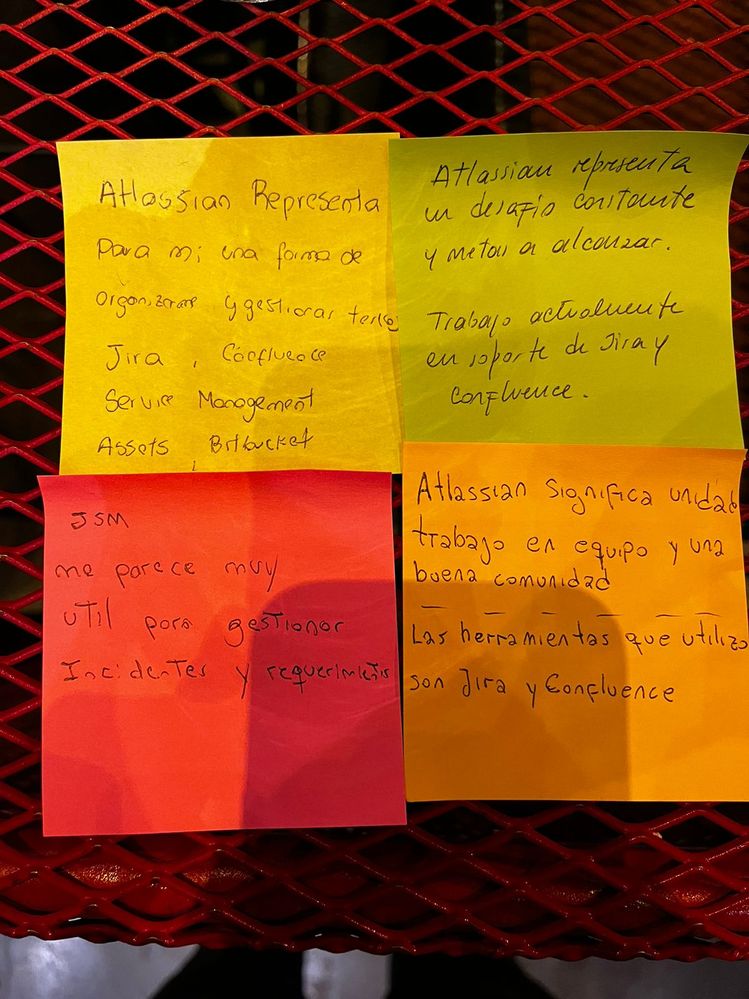 Atlassian Representa
Para mi una forma de
organizarme y gestionar
Jira, Confluence
Service Management
Assets, Bitbucket
Atlassian representa
un desafío constante
y metas a alcanzar.
Trabajo actualmente
en soporte de Jira y
Confluence.
JSM
me parece muy
util para gestionar
Incidentes y requerimientos
Atlassian significa unidad
trabajo en equipo y una
buena comunidad
Las herramientas que utilizo
son Jira y Confluence